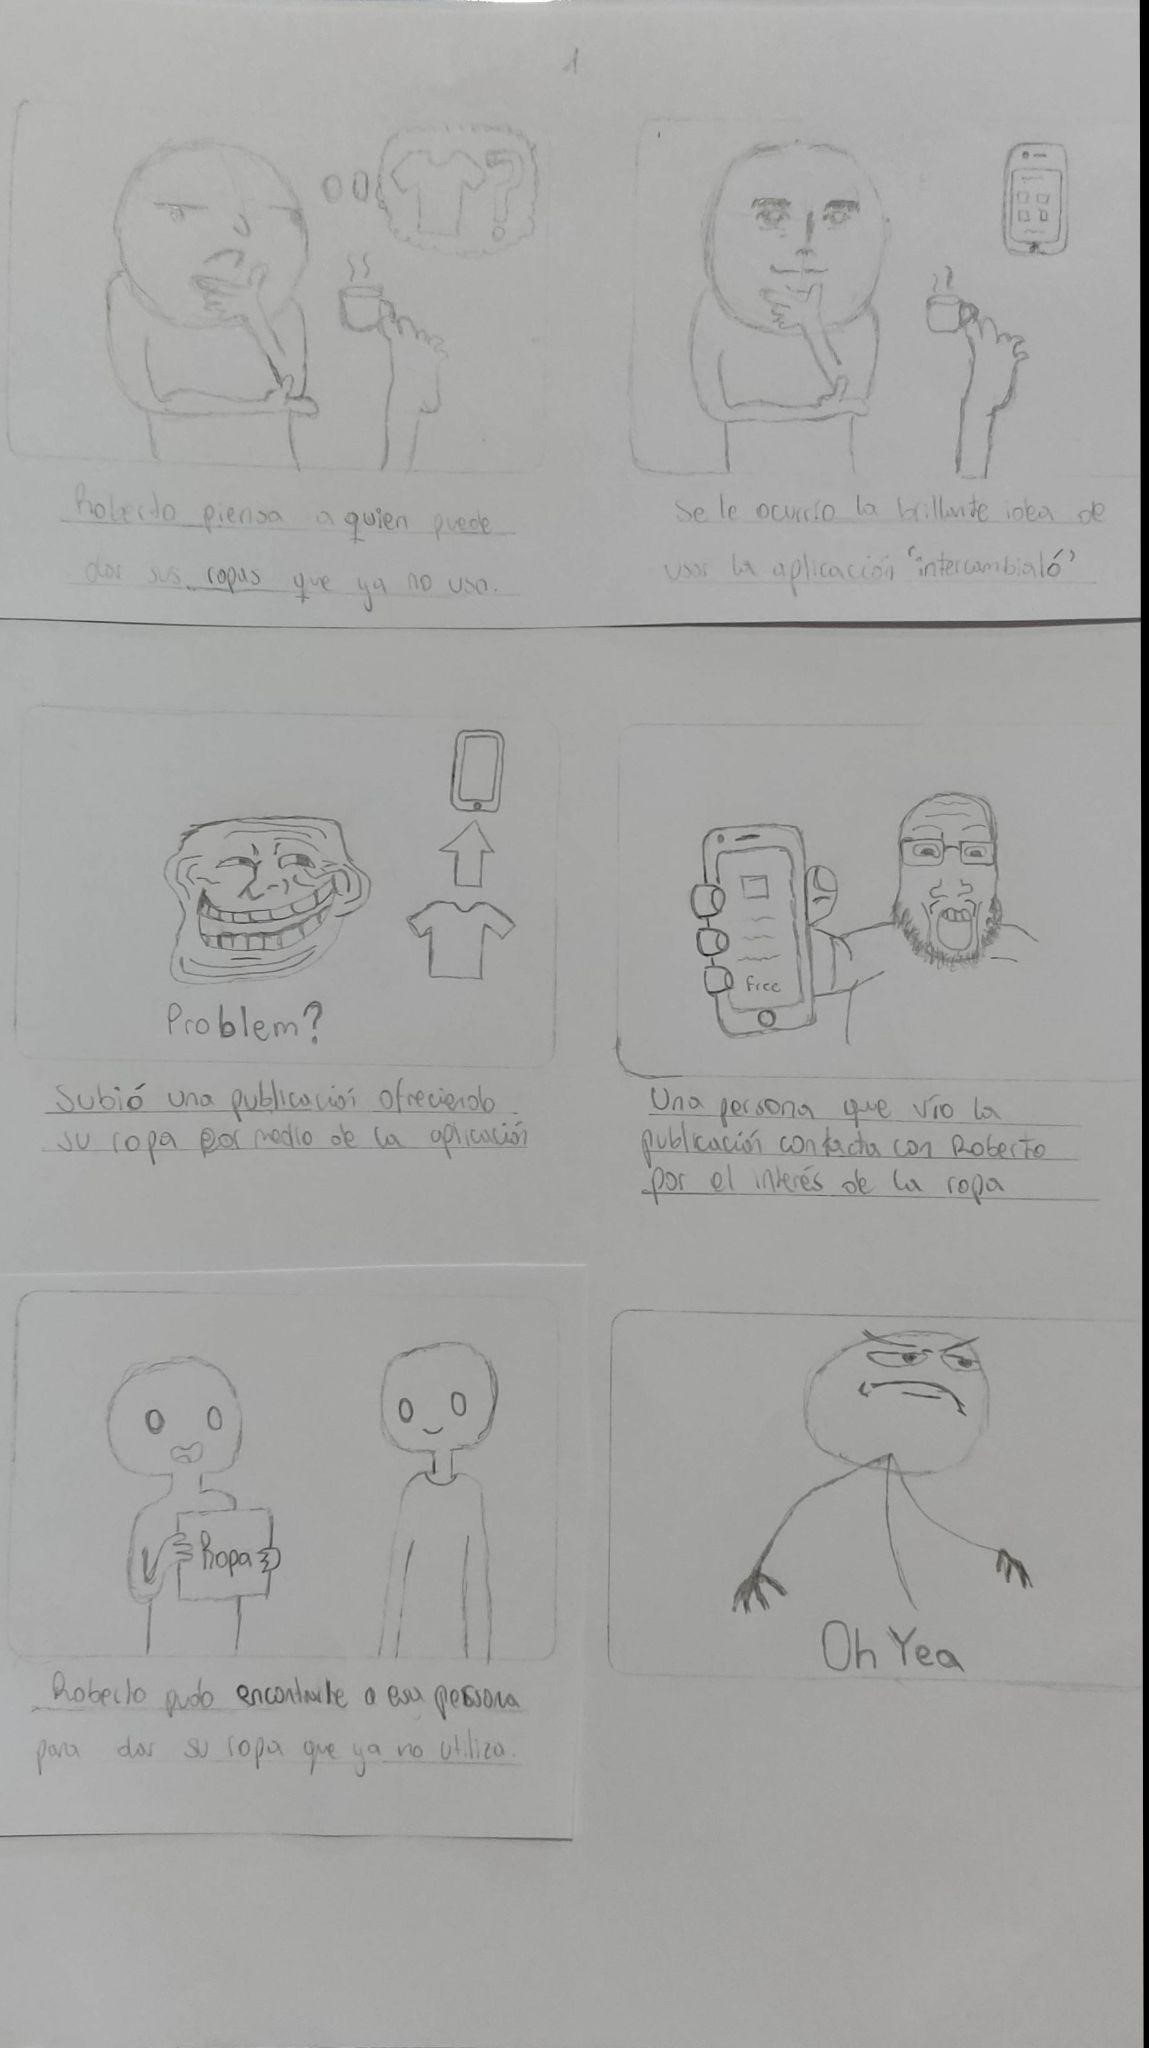 1
Roberto piensa a quien puede
dar sus ropas que ya no usa.
Se le ocurrio la brillante idea de
usar la aplicación "intercambialó"
Problem?
Subió una publicación ofreciendo
su ropa por medio de la aplicación
Free
Una persona que vio la
publicación contacta con Roberto
por el interés de la ropa
Ropa
Roberto pudo encontrarle a esa persona
para dar su ropa que ya no utiliza.
Oh Yea